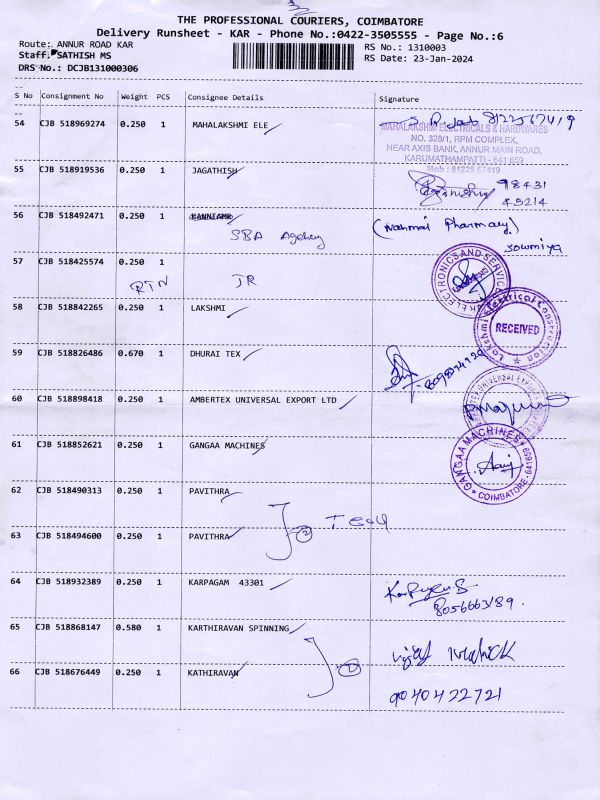 THE PROFESSIONAL COURIERS, COIMBATORE
Delivery Runsheet - KAR - Phone No.:0422-3505555 - Page No.:6
Route: ANNUR ROAD KAR
RS No.: 1310003
Staff: SATHISH MS
RS Date: 23-Jan-2024
DRS No.: DCJB131000306
S No Consignment No Weight PCS Consignee Details Signature
54 CJB 518969274 0.250 1 MAHALAKSHMI ELE
MAHALAKSHMI ELECTRICALS & HARDWARES
NO. 328/1, RPM COMPLEX,
NEAR AXIS BANK, ANNUR MAIN ROAD,
KARUMATHAMPATTI - 641 659
Mob : 81225 67419
55 CJB 518919536 0.250 1 JAGATHISH
98431
43214
56 CJB 518492471 0.250 1 KANNIAMR
SBA Agency
(Nahmai Pharmacy)
Sowmiya
57 CJB 518425574 0.250 1
RTN JR
ELECTRONICS AND SERVICE
58 CJB 518842265 0.250 1 LAKSHMI
Lakshmi Electrical Construction
RECEIVED
59 CJB 518826486 0.670 1 DHURAI TEX
60 CJB 518898418 0.250 1 AMBERTEX UNIVERSAL EXPORT LTD
61 CJB 518852621 0.250 1 GANGAA MACHINES
GANGAA MACHINES
COIMBATORE
62 CJB 518490313 0.250 1 PAVITHRA
63 CJB 518494600 0.250 1 PAVITHRA
64 CJB 518932389 0.250 1 KARPAGAM 43301
8056663189.
65 CJB 518868147 0.580 1 KARTHIRAVAN SPINNING
66 CJB 518676449 0.250 1 KATHIRAVAN
9040422721